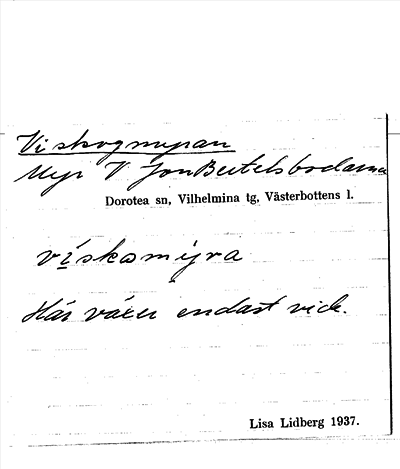 Viskogmyran
Myr V JonBertelsbodarna
Dorotea sn, Vilhelmina tg, Västerbottens l.
vískomỵra
Här växer endast vide.
Lisa Lidberg 1937.